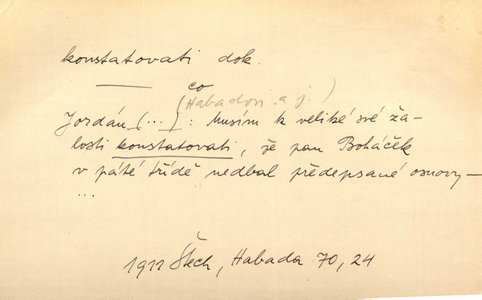 konstatovati dok.
co
(Habadovi a j.)
Jordán (...) : Musím k veliké své ža-
losti konstatovati, že pan Boháček
v páté třídě nedbal předepsané osnovy —
...
1911 Štech, Habada 70, 24